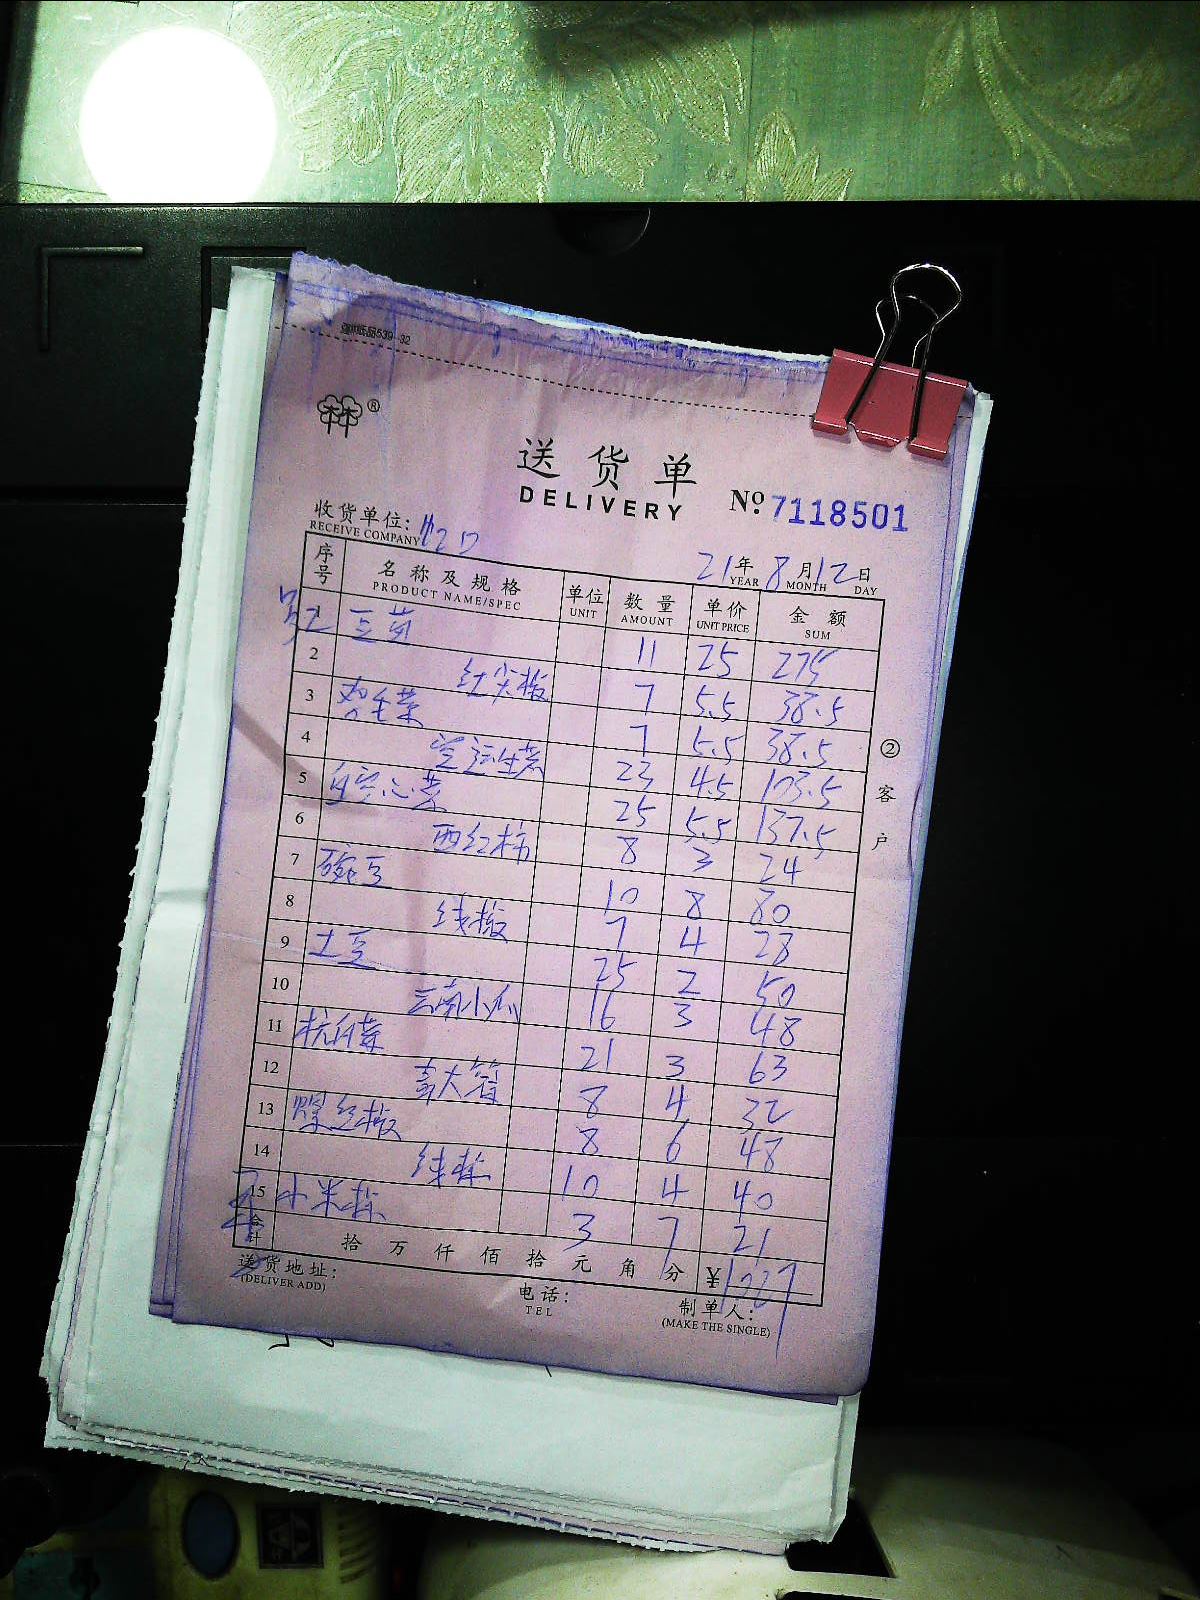 539-32
®
送货单
DELIVERY
№ 7118501
收货单位:
RECEIVE COMPANY
21年 8月 12日
YEAR MONTH DAY
序号 名称及规格 单位 数量 单价 金额
PRODUCT NAME/SPEC UNIT AMOUNT UNIT PRICE SUM
豆苗 11 25 275
2 红尖椒 7 5.5 38.5
3 鸡毛菜 7 5.5 38.5
4 空运生菜 23 4.5 103.5
5 空心菜 25 5.5 137.5
6 西红柿 8 3 24
7 豌豆 10 8 80
8 线椒 7 4 28
9 土豆 25 2 50
10 云南小瓜 16 3 48
11 杭白菜 21 3 63
12 大筒 8 4 32
13 螺丝椒 8 6 48
14 10 4 40
15 小米椒 3 7 21
合计 拾万仟佰拾元角分 ¥1027
送货地址:
(DELIVER ADD)
电话:
TEL
制单人:
(MAKE THE SINGLE)
②客户